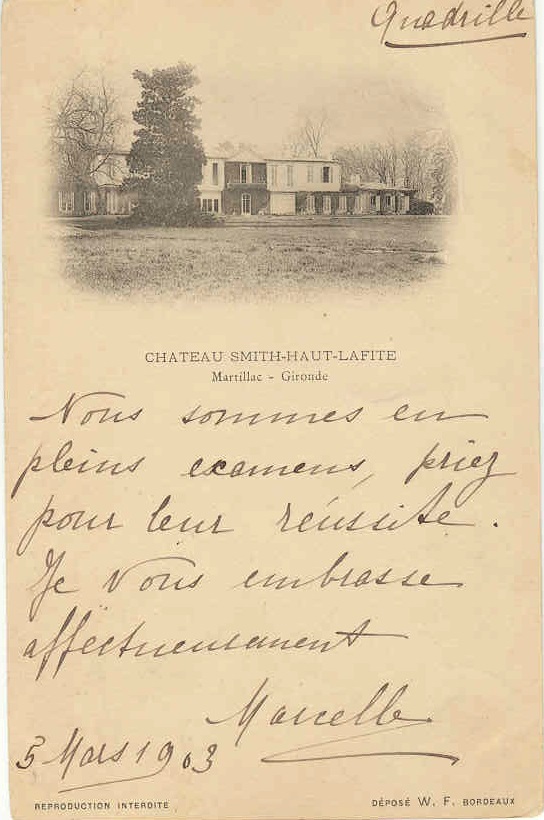 Quadrille
CHATEAU SMITH-HAUT-LAFITE
Martillac - Gironde
Nous sommes en
pleins examens, priez
pour leur réussite.
Je vous embrasse
affectueusement
Marcelle
5 Mars 1903
REPRODUCTION INTERDITE
DÉPOSÉ W. F. BORDEAUX